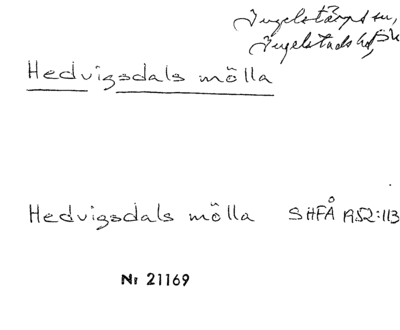 Ingelstorps sn,
Ingelstads hd, Sk
Hedvigsdals mölla
Hedvigsdals mölla SHFÅ 1952:113
Nr 21169